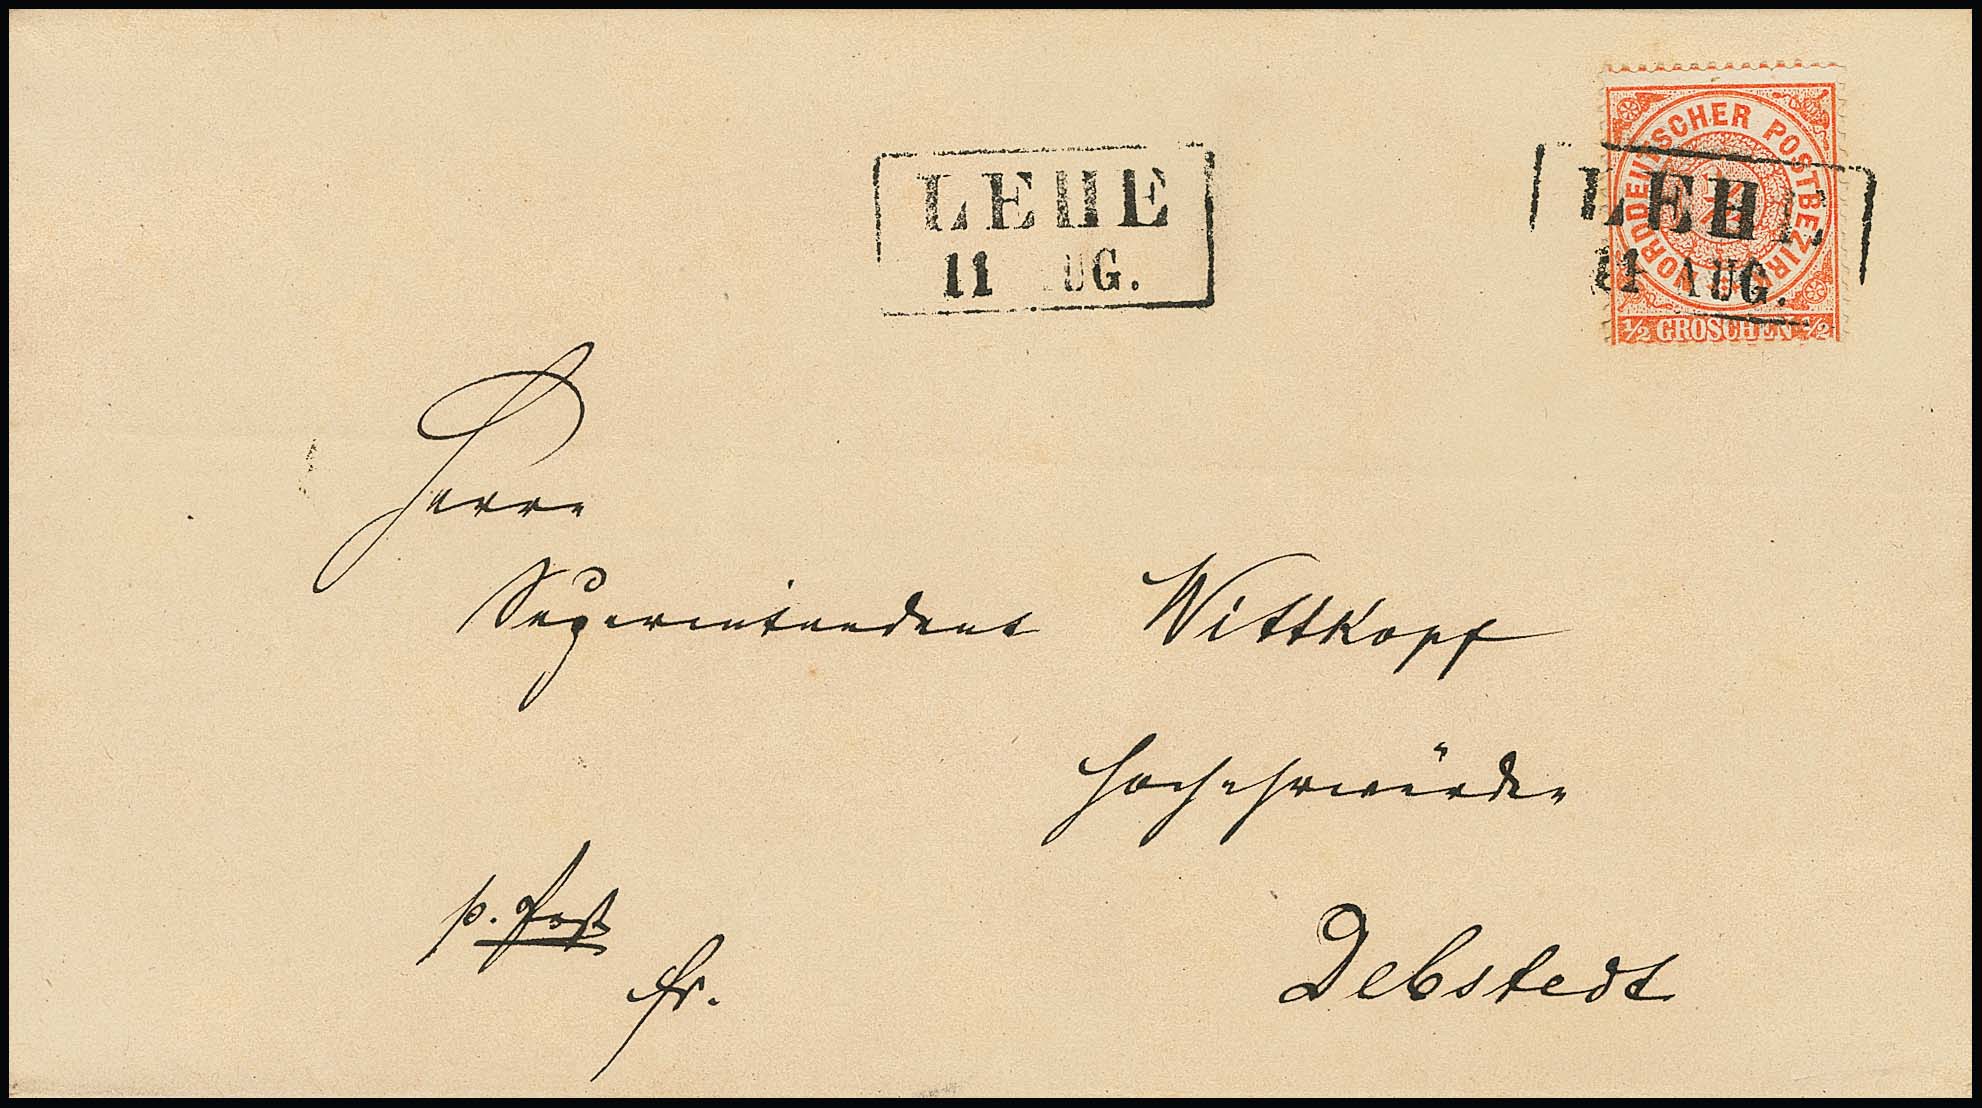 LEHE
11 AUG.
NORDDEUTSCHER POSTBEZIRK
1/2 GROSCHEN 1/2
LEHE
11 AUG.
Herrn
Superintendent Wittkopf
Hochehrwürden
p. Post
fr.
Debstedt